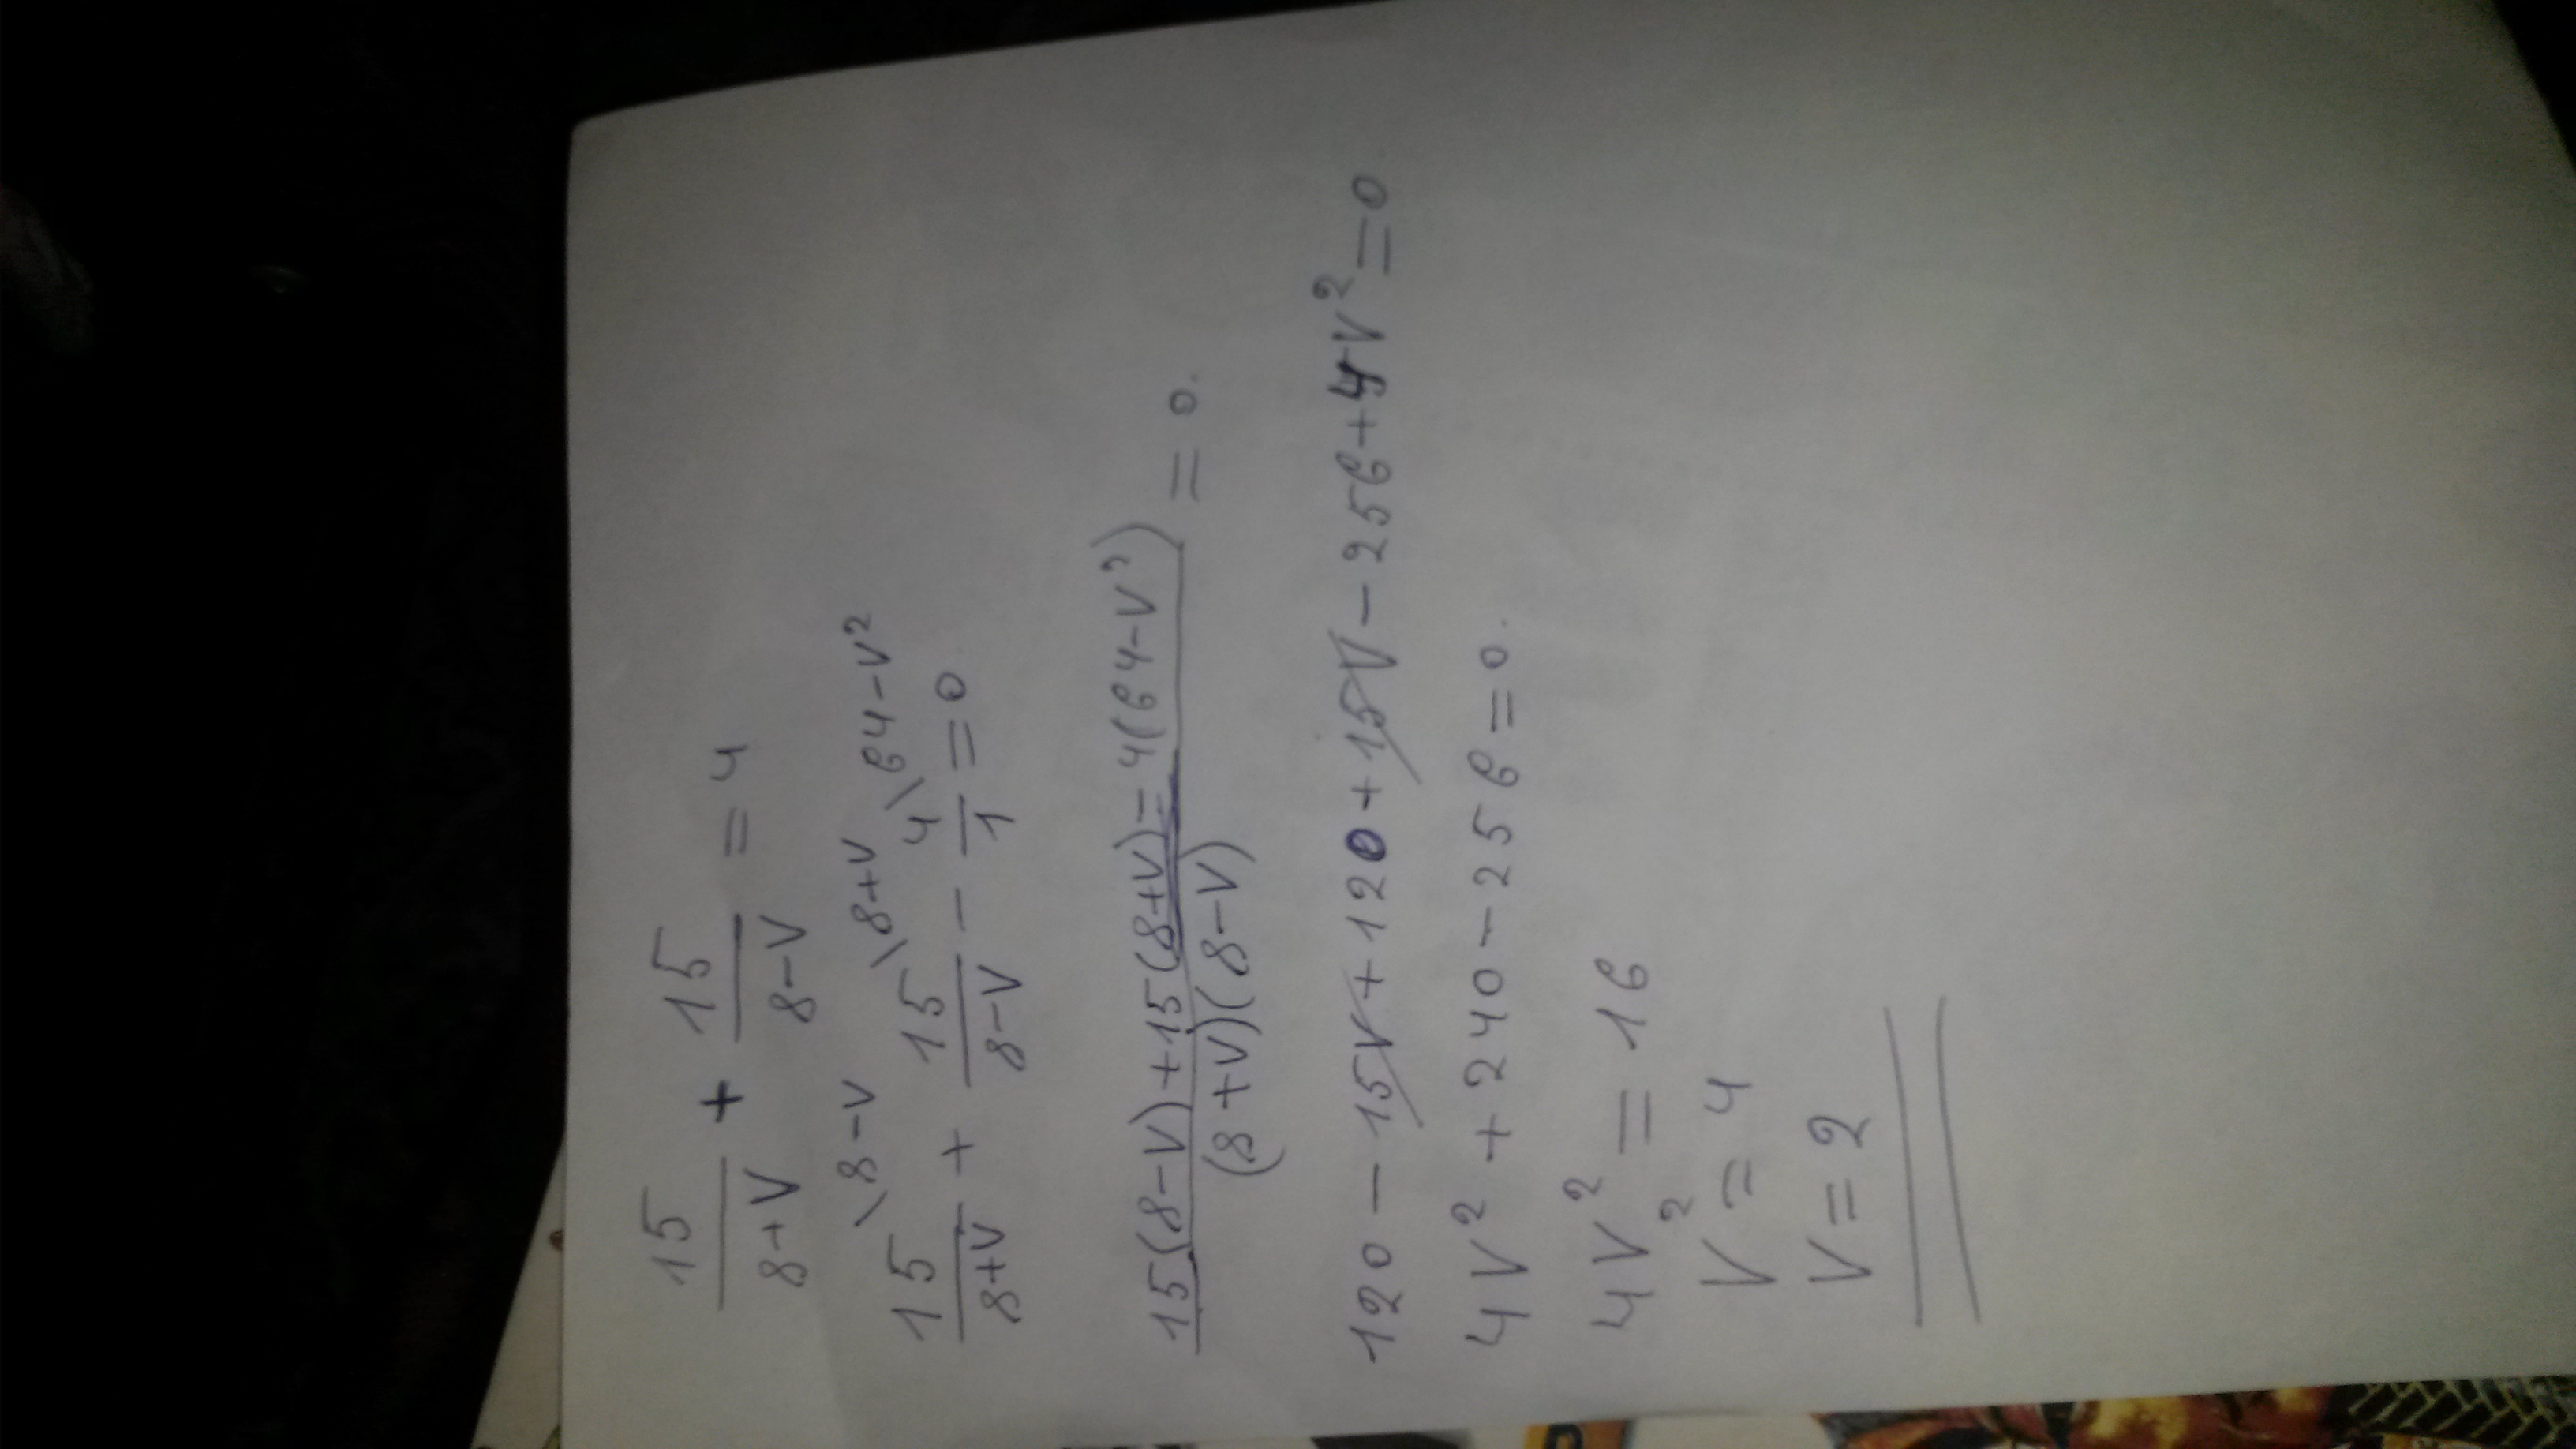 15/(8+V) + 15/(8-V) = 4
15\8-V/(8+V) + 15\8+V/(8-V) - 4\64-V²/1 = 0
(15(8-V)+15(8+V)-4(64-V²))/((8+V)(8-V)) = 0.
120-15V+120+15V-256+4V²=0
4V²+240-256=0.
4V²=16
V²=4
V=2